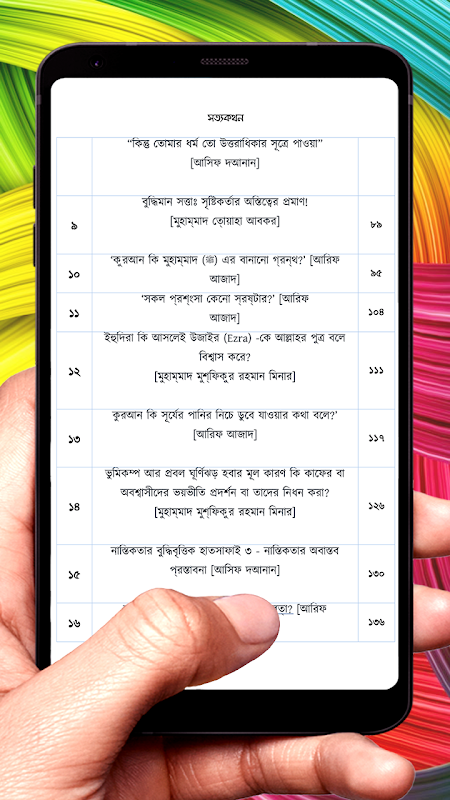 সত্যকথন
“কিন্তু তোমার ধর্ম তো উত্তরাধিকার সূত্রে পাওয়া”
[আসিফ দআনান]
বুদ্ধিমান সত্তাঃ সৃষ্টিকর্তার অস্তিত্বের প্রমাণ!
৯ [মুহাম্মাদ তোয়াহা আবকর] ৮৯
‘কুরআন কি মুহাম্মাদ (ﷺ) এর বানানো গ্রন্থ?’ [আরিফ
১০ আজাদ] ৯৫
‘সকল প্রশংসা কেনো স্রষ্টার?’ [আরিফ
১১ আজাদ] ১০৪
ইহুদিরা কি আসলেই উজাইর (Ezra) -কে আল্লাহর পুত্র বলে
বিশ্বাস করে?
১২ [মুহাম্মাদ মুশফিকুর রহমান মিনার] ১১১
কুরআন কি সূর্যের পানির নিচে ডুবে যাওয়ার কথা বলে?’
১৩ [আরিফ আজাদ] ১১৭
ভুমিকম্প আর প্রবল ঘূর্ণিঝড় হবার মূল কারণ কি কাফের বা
অবশ্বাসীদের ভয়ভীতি প্রদর্শন বা তাদের নিধন করা?
১৪ [মুহাম্মাদ মুশফিকুর রহমান মিনার] ১২৬
নাস্তিকতার বুদ্ধিবৃত্তিক হাতসাফাই ৩ - নাস্তিকতার অবাস্তব
১৫ প্রস্তাবনা [আসিফ দআনান] ১৩০
[আরিফ
১৬ ১৩৬